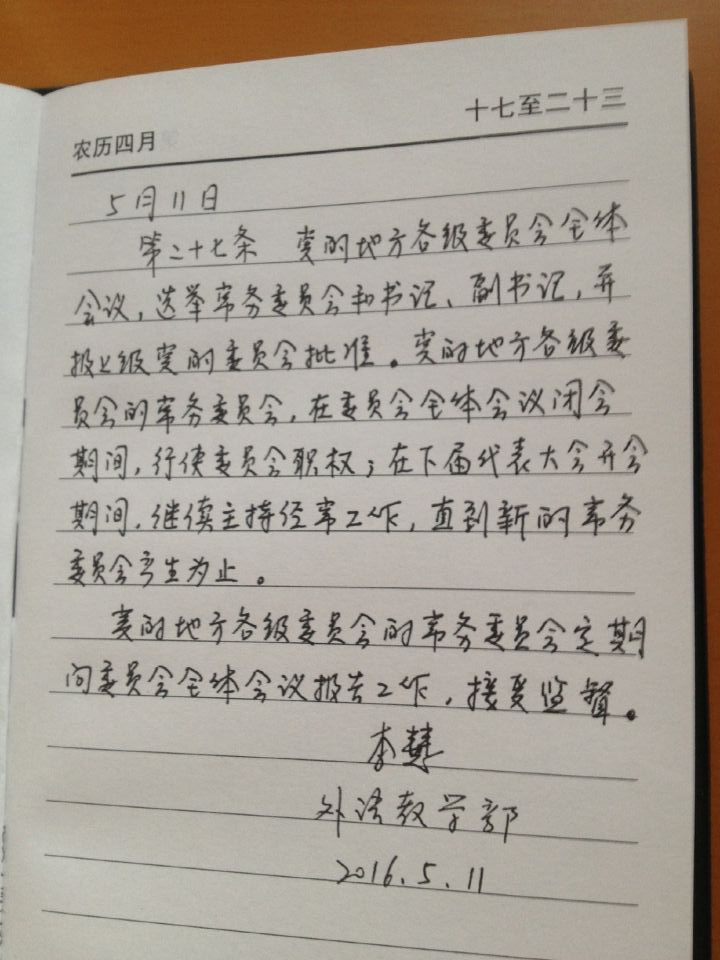 农历四月
十七至二十三
5月11日
第二十七条 党的地方各级委员会全体
会议,选举常务委员会和书记、副书记,并
报上级党的委员会批准。党的地方各级委
员会的常务委员会,在委员会全体会议闭会
期间,行使委员会职权;在下届代表大会开会
期间,继续主持经常工作,直到新的常务
委员会产生为止。
党的地方各级委员会的常务委员会定期
向委员会全体会议报告工作,接受监督。
李慧
外语教学部
2016.5.11